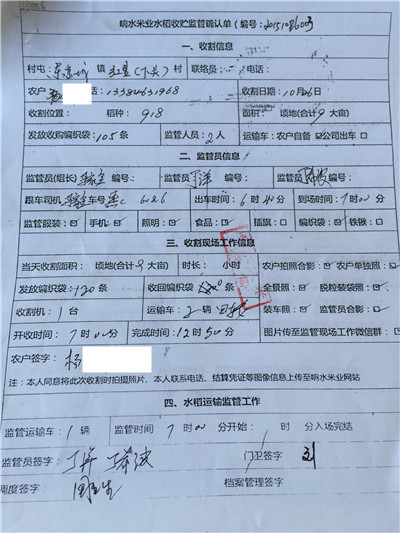 响水米业水稻收贮监管确认单(编号:20151026003
一、收割信息
村屯:东京城 镇 红星(下头) 村 联络员: 电话:
农户 电话:13384631968 收割日期:10月26日
收割位置: 稻种:918 面积: 顷地(合计9大亩)
发放收购编织袋:105条 监管人员:2人 运输车:农户自备☑公司出车:□
二、监管员信息
监管员(组长) 编号: 监管员 丁洋 编号: 监管员 编号:
跟车司机 车号 黑C 6126 出车时间:6时40分 到场时间:7时00分
监管服装:✓ 手机:✓ 照明:✓ 食品:□ 插旗:□ 编织袋:✓ 铁锹:□
三、收割现场工作信息
当天收割面积: 顷地(合计9大亩) 时长: 小时 农户拍照合影:✓ 农户单独照:✓
发放编织袋:120条 收回编织袋: 0条 全景照:✓ 脱粒装袋照:✓
收割机:1台 运输车:2辆 装车照:✓ 监管员合影:✓
开收时间:7时00分 完成时间:12时50分 图片传至监管现场工作微信群:
农户签字:杨
注:本人同意将此次收割时拍摄照片、本人联系电话、结算凭证等图像信息上传至响水米业网站
四、水稻运输监管工作
监管运输车:1辆 监管时间:7时00分开始: 时 分入场完结
监管员签字: 门卫签字 刘
调度签字 档案管理签字: